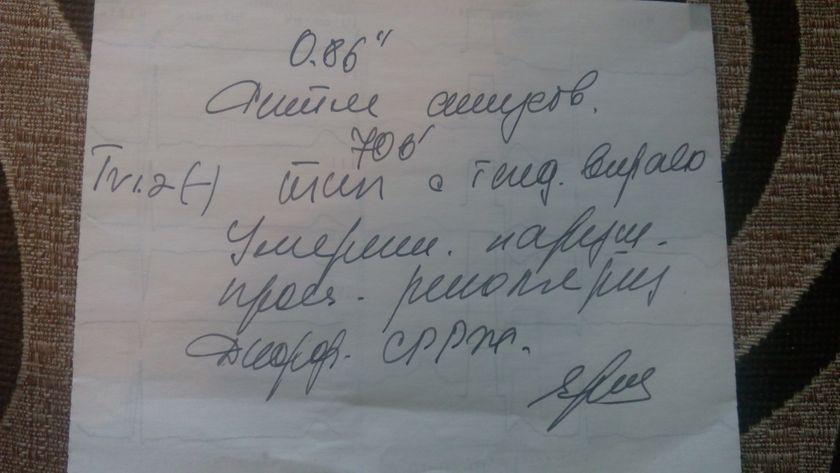 0.86"
Ритм синусов.
70 б'
Tv1.2(-) тип с тенд. вправо
Умерен. наруш.
проц. реполяриз
Диффф. СРРЖ.